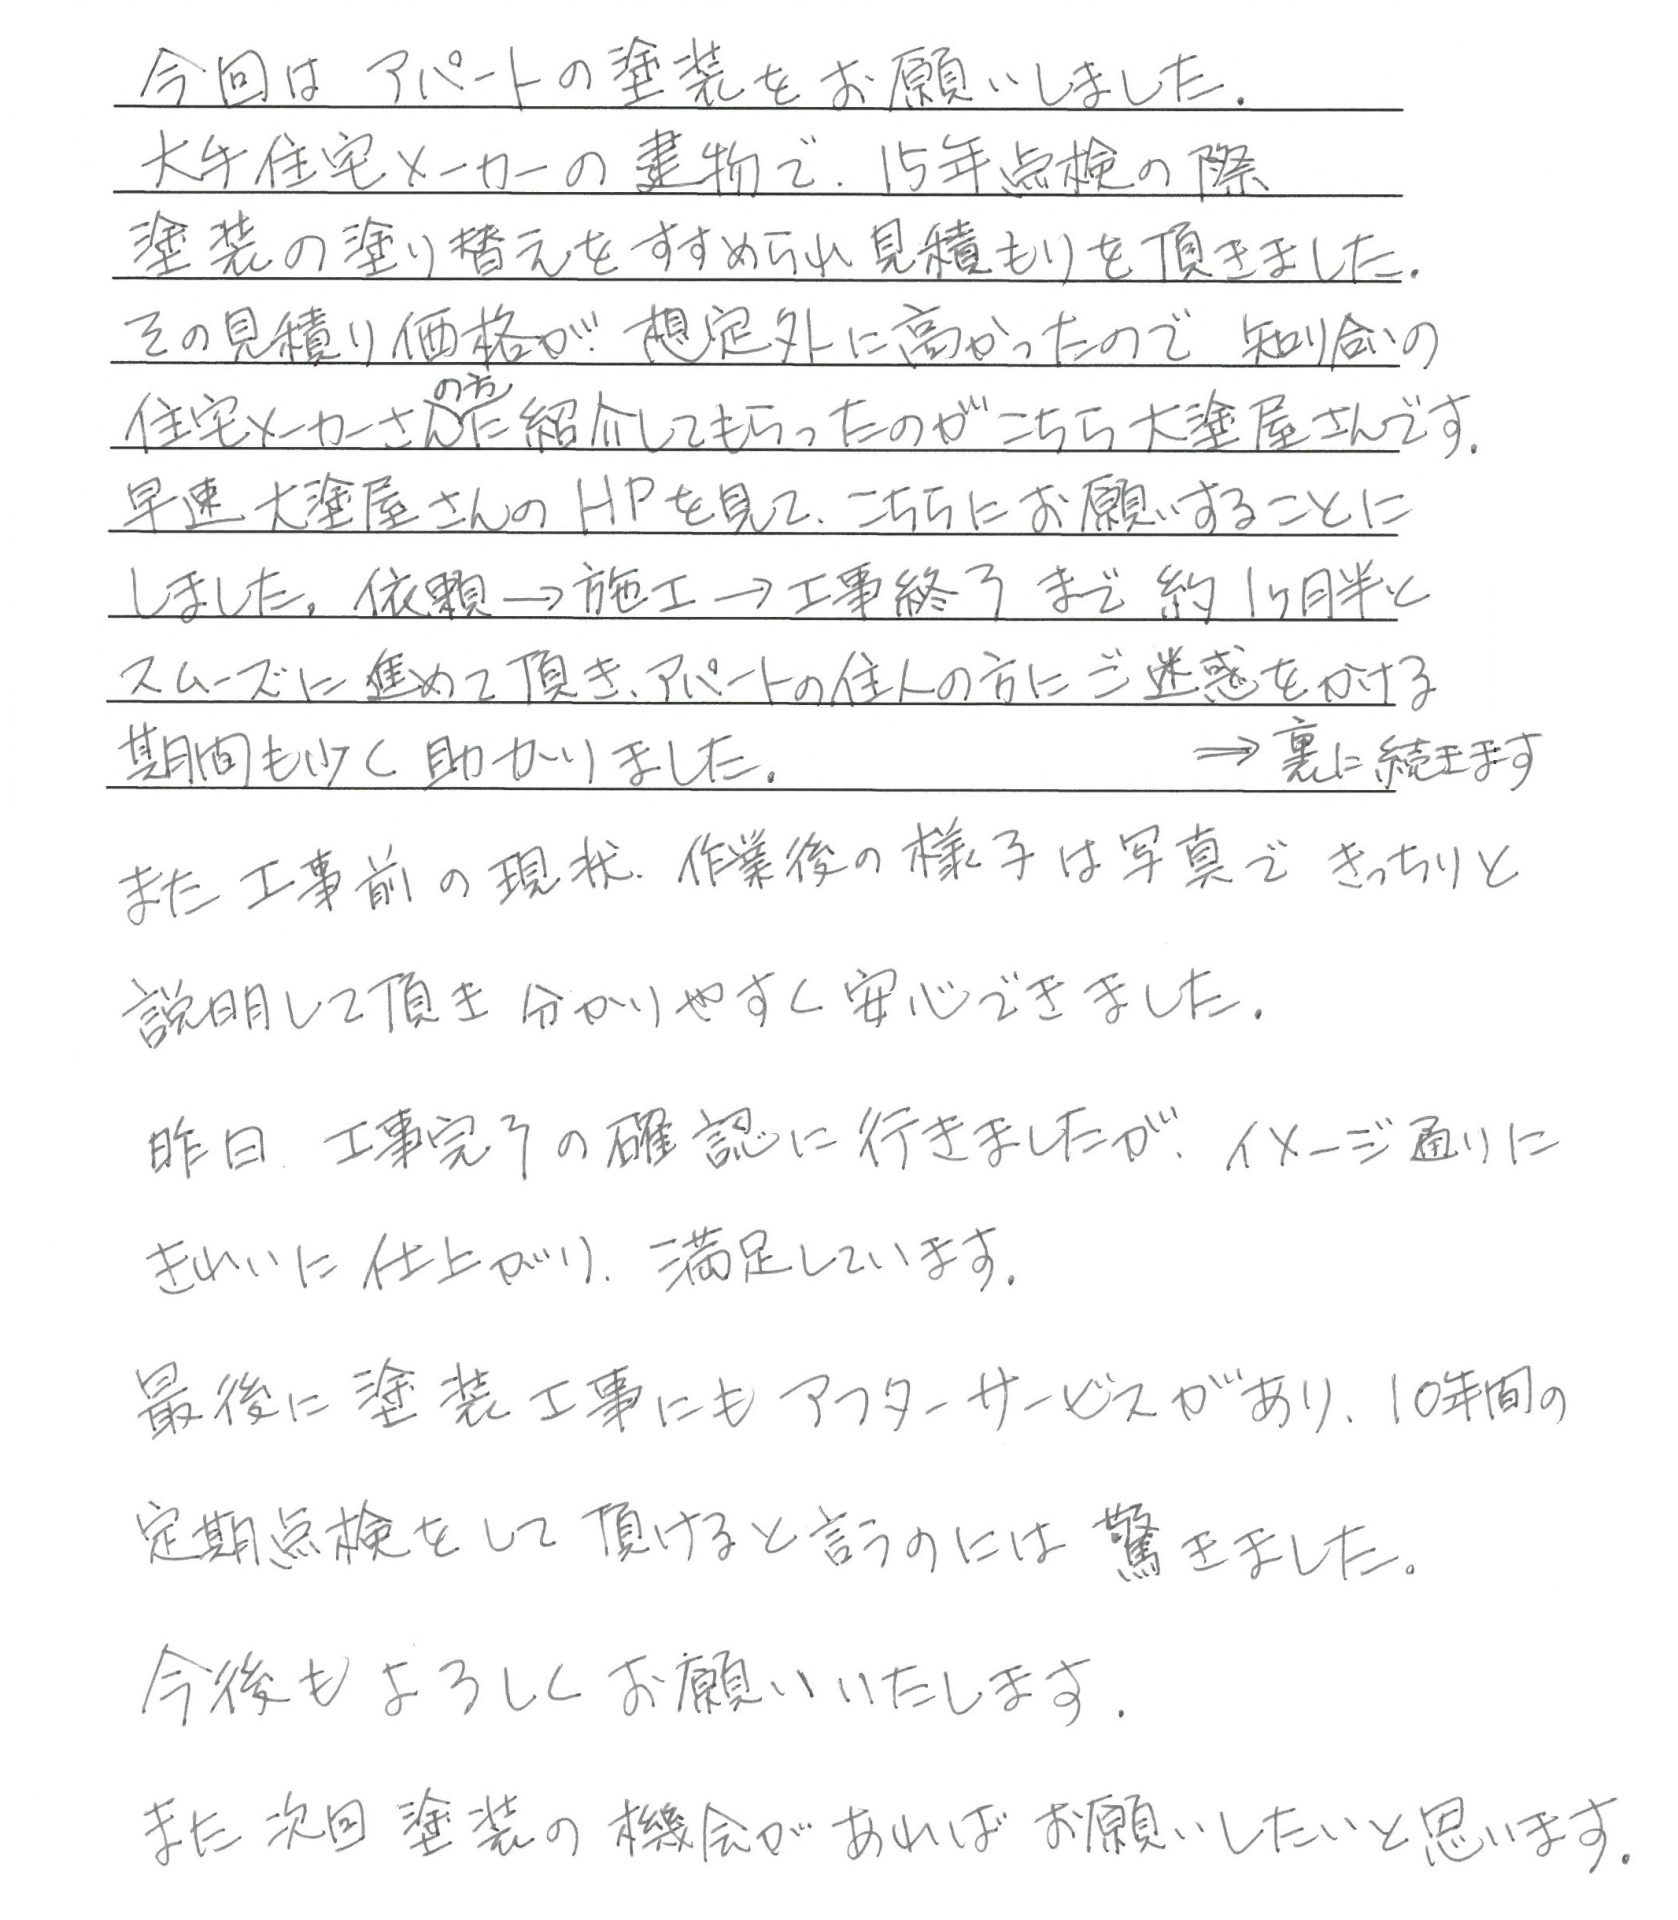 今回は アパートの塗装をお願いしました.
大手住宅メーカーの建物で、15年点検の際
塗装の塗り替えをすすめられ見積もりを頂きました.
その見積り価格が、想定外に高かったので 知り合いの
住宅メーカーさんの方に紹介してもらったのがこちら大塗屋さんです.
早速 大塗屋さんの HPを見て、こちらにお願いすることに
しました。依頼→施工→工事終了 まで 約1ヶ月半と
スムーズに進めて頂き、アパートの住人の方にご迷惑をかける
期間も少く 助かりました. ⇒ 裏に続きます
また 工事前の現状、作業後の様子は写真で きっちりと
説明して頂き 分かりやすく安心できました.
昨日 工事完了の確認に行きましたが、イメージ通りに
きれいに仕上がり、満足しています.
最後に塗装工事にもアフターサービスがあり、10年間の
定期点検をして頂けると言うのには驚きました。
今後もよろしくお願いいたします.
また次回塗装の機会があればお願いしたいと思います.